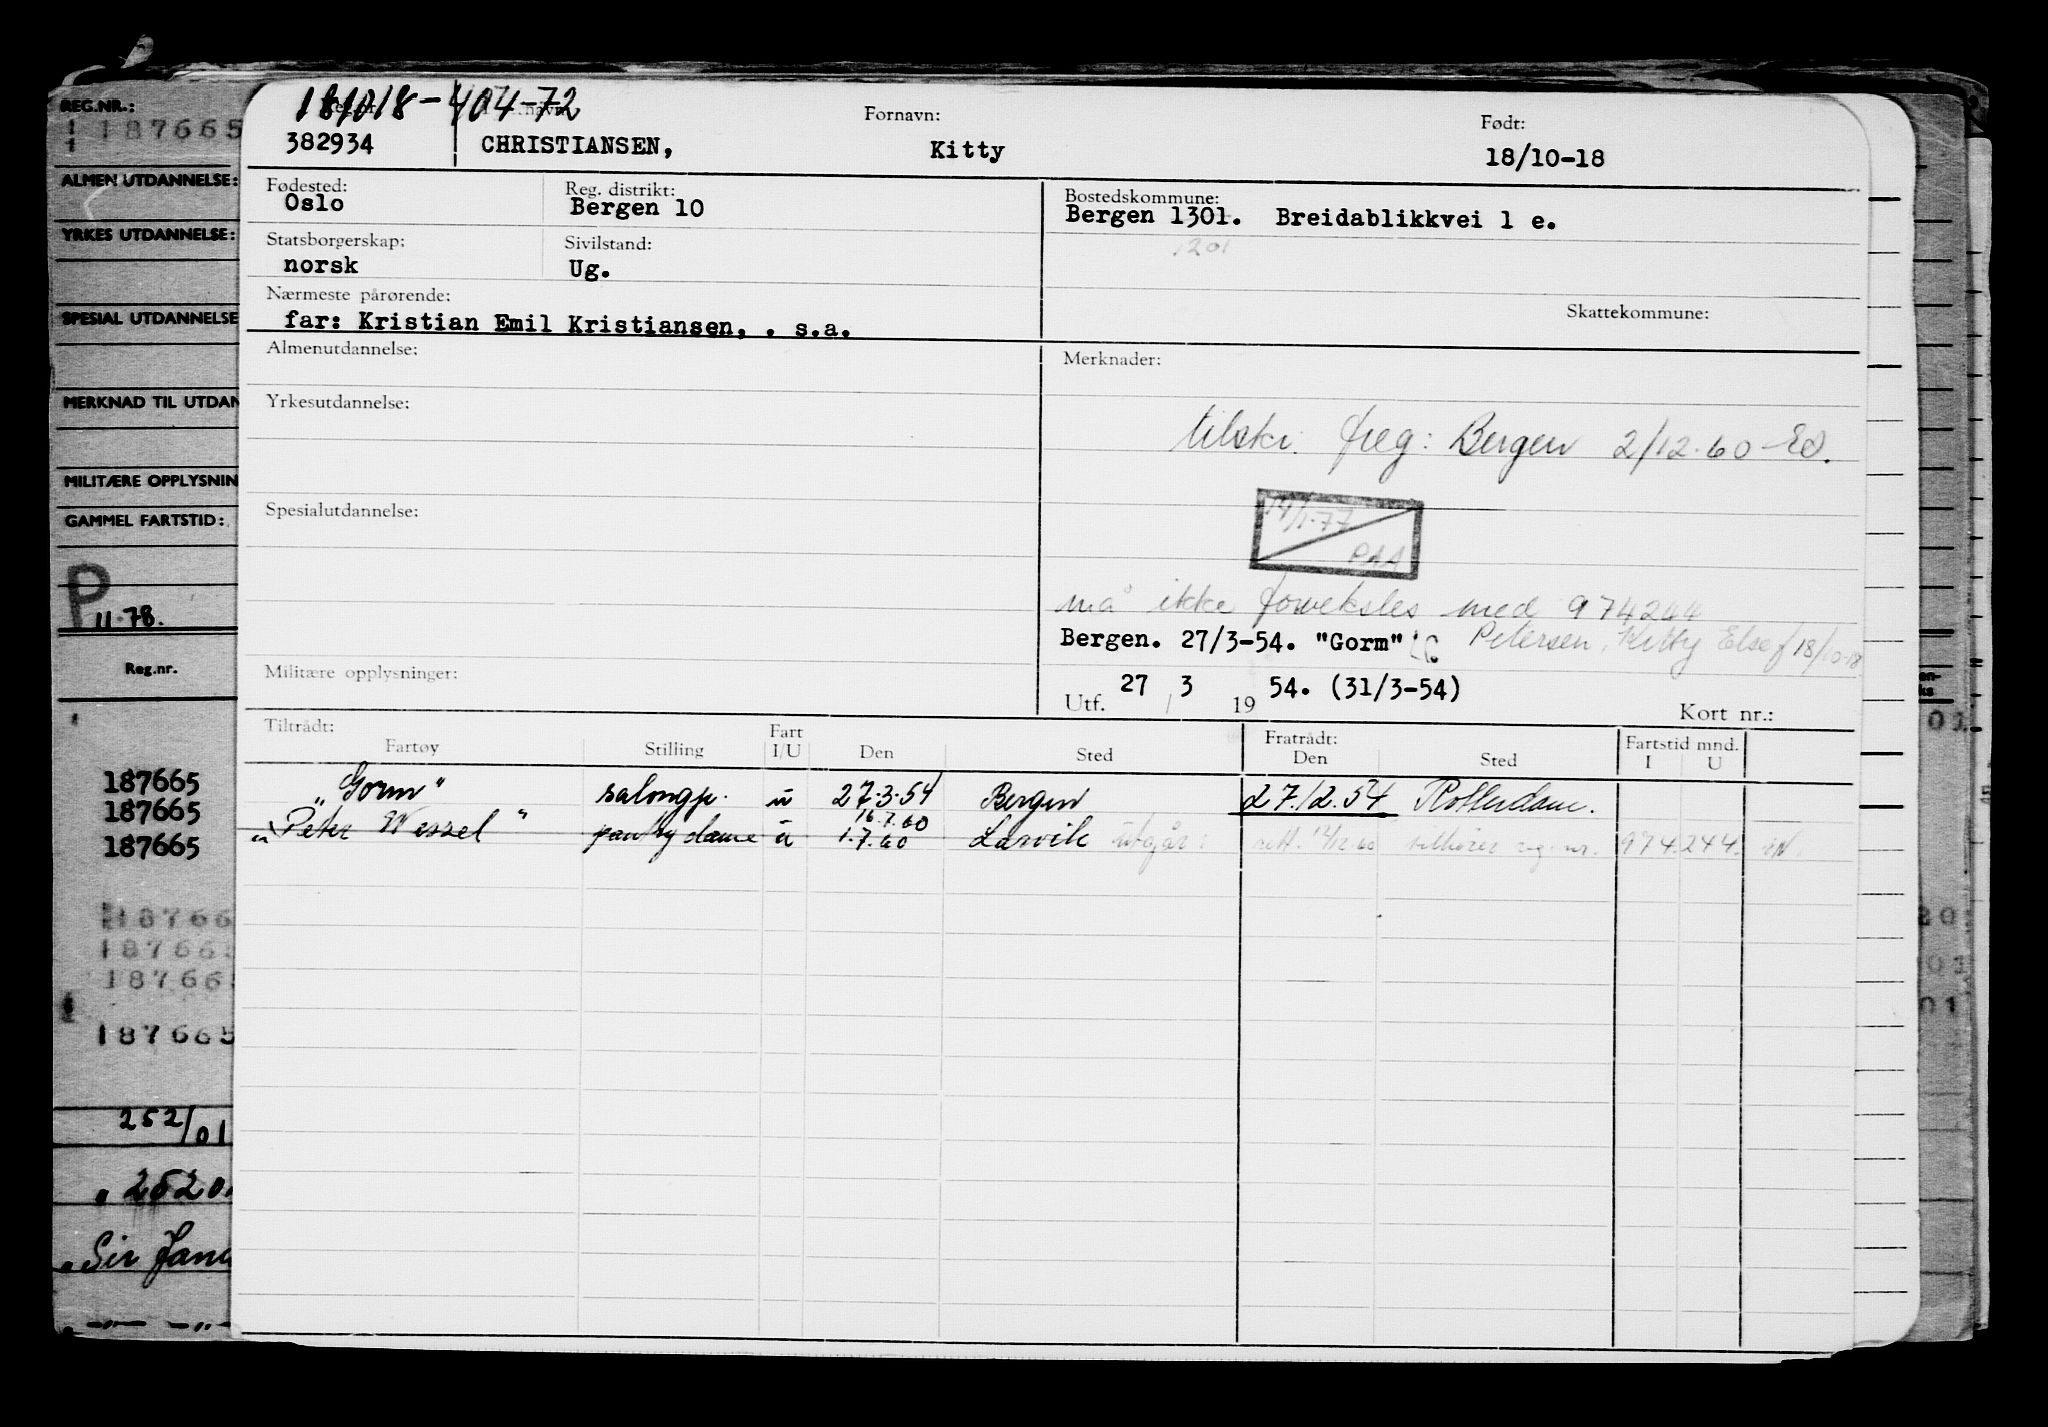 REG.NR.:
187665
ALMEN UTDANNELSE:
YRKES UTDANNELSE:
SPESIAL UTDANNELSE
MERKNAD TIL UTDAN
MILITÆRE OPPLYSNIN
GAMMEL FARTSTID:
P 11-78.
Reg.nr.
187665
187665
187665
18766
187665
18766
187665
252/01
252 0
Sir
181018-404-72
Fornavn:
Født:
382934 CHRISTIANSEN, Kitty 18/10-18
Fødested: Reg. distrikt: Bostedskommune:
Oslo Bergen 10 Bergen 1301. Breidablikkvei 1 e.
Statsborgerskap: Sivilstand: 1201
norsk Ug.
Nærmeste pårørende: Skattekommune:
far: Kristian Emil Kristiansen, . s.a.
Almenutdannelse: Merknader:
Yrkesutdannelse:
tilskr. freg: Bergen 2/12.60
Spesialutdannelse:
14/1-77
PAA
må ikke forveksles med 974244
Bergen. 27/3-54. "Gorm" Petersen, Kitty Else f 18/10-18
Militære opplysninger:
Utf. 27 / 3 19 54. (31/3-54)
Kort nr.:
Tiltrådt: Fart Fratrådt: Fartstid mnd.
Fartøy Stilling I/U Den Sted Den Sted I U
"Gorm" salongp. u 27.3.54 Bergen 27.12.54 Rotterdam.
16.7.60
"Peter Wessel" pantrydame u 1.7.60 Larvik utgår: rett. 12/12.60 tilhører reg. nr. 974.244.